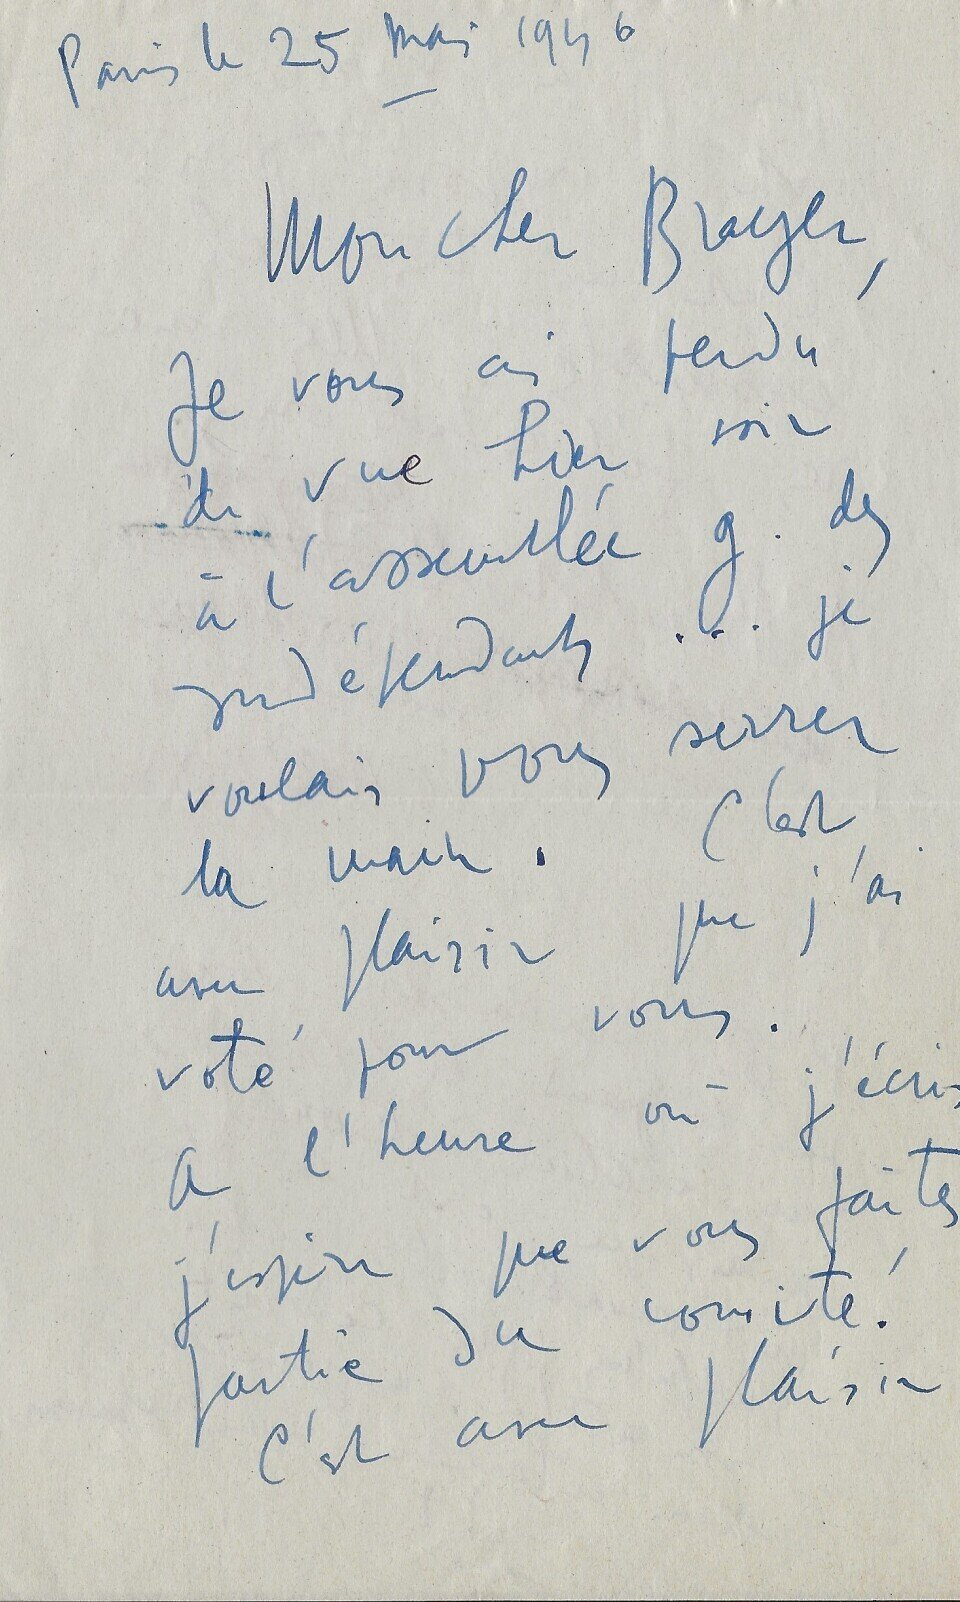 Paris le 25 mai 1946
Mon cher Brayer,
Je vous ai perdu
de vue hier soir
à l'assemblée g. des
indépendants ... je
voulais vous serrer
la main. C'est
avec plaisir que j'ai
voté pour vous.
A l'heure où j'écris
j'espère que vous faites
partie du comité.
C'est avec plaisir